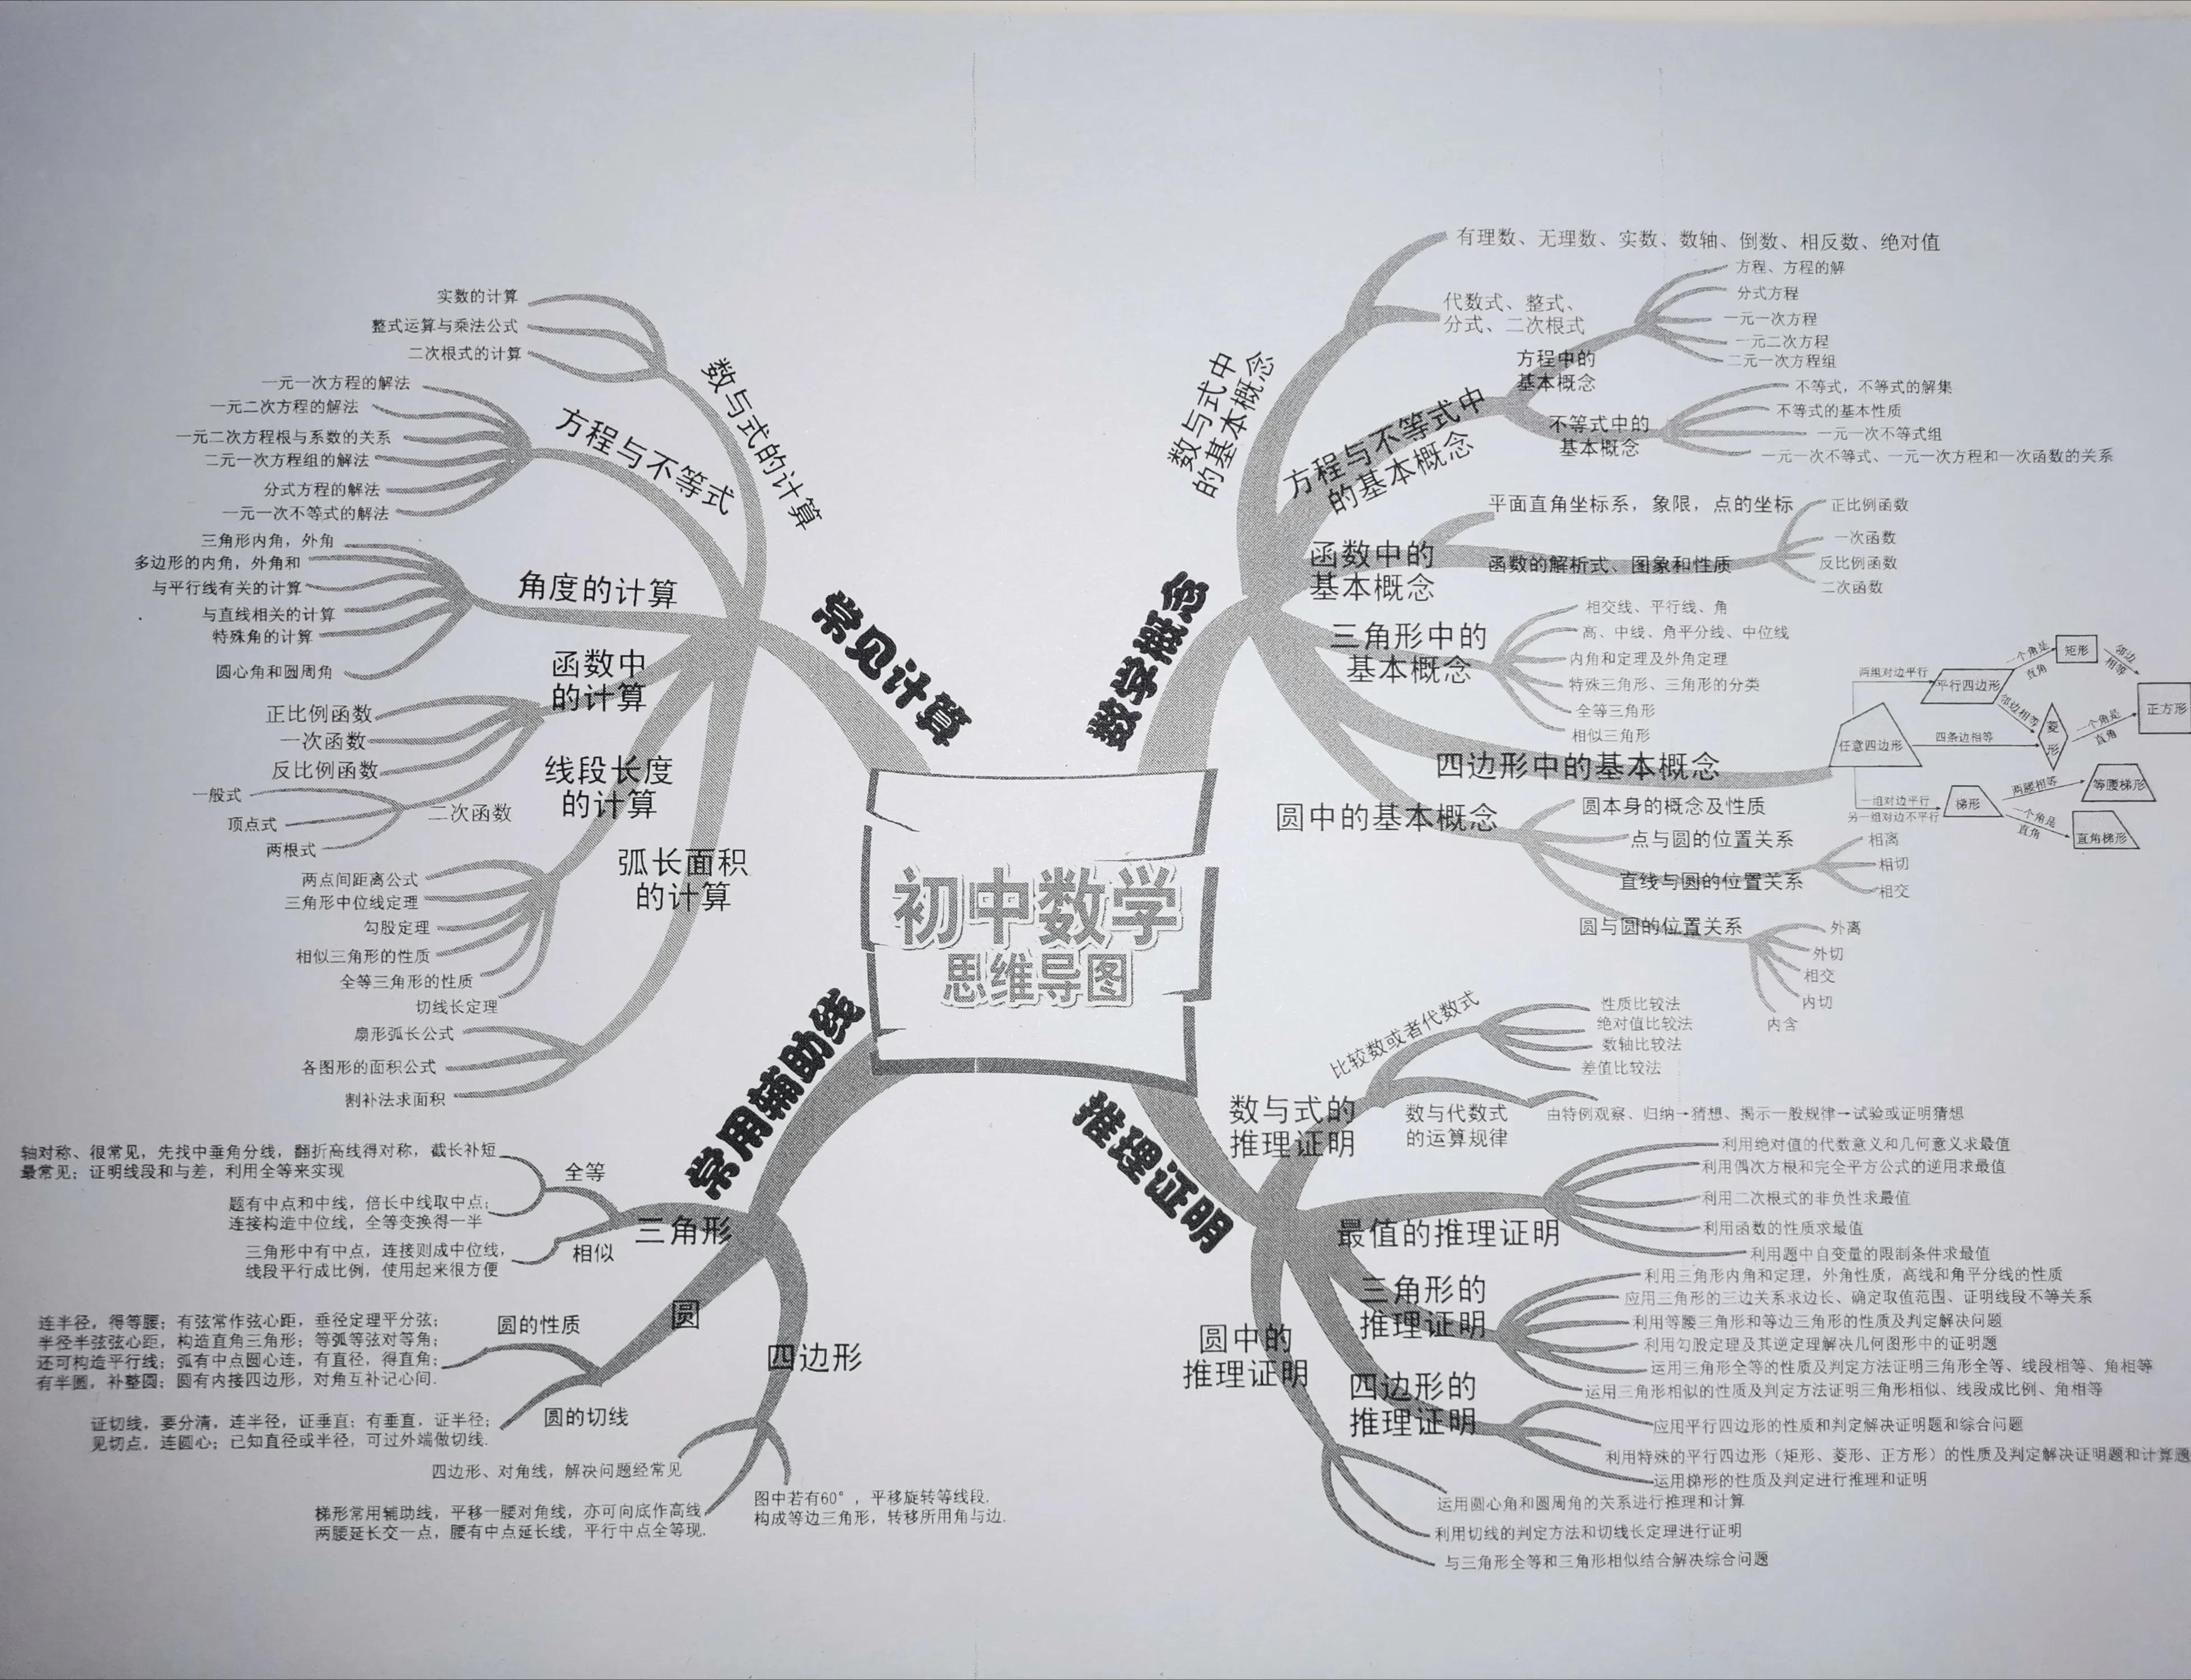 初中数学
思维导图
常见计算
数与式的计算
实数的计算
整式运算与乘法公式
二次根式的计算
方程与不等式
一元一次方程的解法
一元二次方程的解法
一元二次方程根与系数的关系
二元一次方程组的解法
分式方程的解法
一元一次不等式的解法
角度的计算
三角形内角，外角
多边形的内角，外角和
与平行线有关的计算
与直线相关的计算
特殊角的计算
圆心角和圆周角
函数中
的计算
正比例函数
一次函数
反比例函数
二次函数
一般式
顶点式
两根式
线段长度
的计算
两点间距离公式
三角形中位线定理
勾股定理
相似三角形的性质
全等三角形的性质
切线长定理
弧长面积
的计算
扇形弧长公式
各图形的面积公式
割补法求面积
常用辅助线
三角形
全等
轴对称、很常见，先找中垂角分线，翻折高线得对称，截长补短
最常见；证明线段和与差，利用全等来实现
题有中点和中线，倍长中线取中点；
连接构造中位线，全等变换得一半
相似
三角形中有中点，连接则成中位线，
线段平行成比例，使用起来很方便
圆
圆的性质
连半径，得等腰；有弦常作弦心距，垂径定理平分弦；
半径半弦弦心距，构造直角三角形；等弧等弦对等角；
还可构造平行线；弧有中点圆心连，有直径，得直角；
有半圆，补整圆；圆有内接四边形，对角互补记心间.
圆的切线
证切线，要分清，连半径，证垂直；有垂直，证半径；
见切点，连圆心；已知直径或半径，可过外端做切线.
四边形
四边形、对角线，解决问题经常见
梯形常用辅助线，平移一腰对角线，亦可向底作高线，
两腰延长交一点，腰有中点延长线，平行中点全等现.
图中若有60°，平移旋转等线段.
构成等边三角形，转移所用角与边.
数学概念
数与式中
的基本概念
有理数、无理数、实数、数轴、倒数、相反数、绝对值
代数式、整式、
分式、二次根式
方程与不等式中
的基本概念
方程中的
基本概念
方程、方程的解
分式方程
一元一次方程
一元二次方程
二元一次方程组
不等式中的
基本概念
不等式，不等式的解集
不等式的基本性质
一元一次不等式组
一元一次不等式、一元一次方程和一次函数的关系
函数中的
基本概念
平面直角坐标系，象限，点的坐标
函数的解析式、图象和性质
正比例函数
一次函数
反比例函数
二次函数
三角形中的
基本概念
相交线、平行线、角
高、中线、角平分线、中位线
内角和定理及外角定理
特殊三角形、三角形的分类
全等三角形
相似三角形
四边形中的基本概念
任意四边形
两组对边平行
平行四边形
一个角是
直角
矩形
邻边
相等
邻边相等
四条边相等
菱
形
一个角是
直角
正方形
一组对边平行
另一组对边不平行
梯形
两腰相等
等腰梯形
一个角是
直角
直角梯形
圆中的基本概念
圆本身的概念及性质
点与圆的位置关系
直线与圆的位置关系
相离
相切
相交
圆与圆的位置关系
外离
外切
相交
内切
内含
推理证明
数与式的
推理证明
比较数或者代数式
性质比较法
绝对值比较法
数轴比较法
差值比较法
数与代数式
的运算规律
由特例观察、归纳→猜想、揭示一般规律→试验或证明猜想
最值的推理证明
利用绝对值的代数意义和几何意义求最值
利用偶次方根和完全平方公式的逆用求最值
利用二次根式的非负性求最值
利用函数的性质求最值
利用题中自变量的限制条件求最值
三角形的
推理证明
利用三角形内角和定理，外角性质，高线和角平分线的性质
应用三角形的三边关系求边长、确定取值范围、证明线段不等关系
利用等腰三角形和等边三角形的性质及判定解决问题
利用勾股定理及其逆定理解决几何图形中的证明题
运用三角形全等的性质及判定方法证明三角形全等、线段相等、角相等
运用三角形相似的性质及判定方法证明三角形相似、线段成比例、角相等
四边形的
推理证明
应用平行四边形的性质和判定解决证明题和综合问题
利用特殊的平行四边形（矩形、菱形、正方形）的性质及判定解决证明题和计算题
运用梯形的性质及判定进行推理和证明
圆中的
推理证明
运用圆心角和圆周角的关系进行推理和计算
利用切线的判定方法和切线长定理进行证明
与三角形全等和三角形相似结合解决综合问题